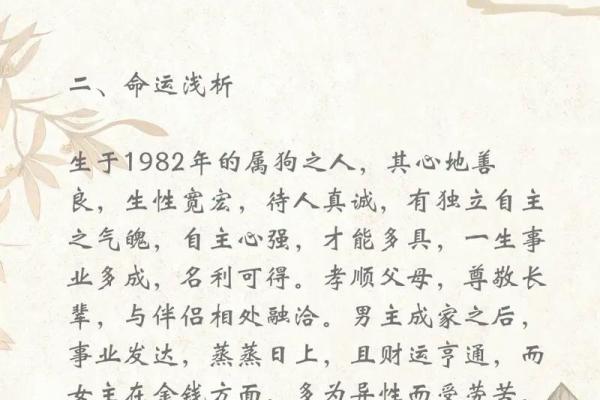 二、命运浅析
生于1982年的属狗之人，其心地善
良，生性宽宏，待人真诚，有独立自主
之气魄，自主心强，才能多具，一生事
业多成，名利可得。孝顺父母，尊敬长
辈，与伴侣相处融洽。男主成家之后，
事业发达，蒸蒸日上，且财运亨通，而
女主在金钱方面，多为异性而受劳苦，